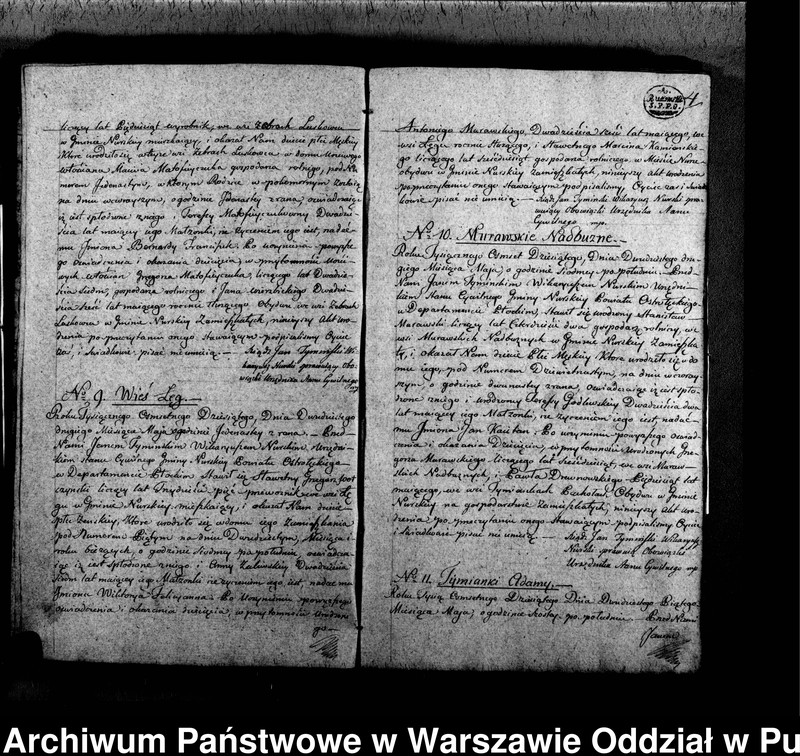 liczący lat Pięćdziesiąt wyrobnik, we wsi Żebrach Laskowcu
w Gminie Nurskiey mieszkaiący, i okazał Nam dziecie płci Męskiey
Które urodziło się w Żebrach Laskowcu w domu
pod Nu
merem Jedenastym,
na dniu wczorayszym, o godzinie Jedenastey zrana, oświadczaiąc
iż iest spłodzone z niego i Józefy Dwadzie
ścia lat maiącey iego Małżonki, że życzeniem iego iest, nadać
mu Jmiona Bernardy Franciszek Po uczynieniu powyższe
go oświadczenia i okazania dziecięcia w przytomności
liczącego lat Dwadzie
ścia siedm, gospodarza rolniczego i Jana Dwadzie
ścia sześć lat maiącego Obydwu we wsi Żebrach
Laskowcu w Gminie Nurskiey Zamieszkałych, ninieyszy Akt Uro
dzenia po przeczytaniu onego Stawaiącym podpisaliśmy Oyciec
zaś, i świadkowie pisać nie umieią. — Xiądz Jan Tymiński Wi
karyusz Nurski sprawuiący Obo
wiązki Urzędnika Stanu Cywilnego
№ 9. Wieś Łęg.
Roku Tysiącznego Osmsetnego Dziesiątego, Dnia Dwudziestego
drugiego Miesiąca Maja o godzinie Jedenastey z rana. — Przed
Nami Janem Tymińskim Wikaryuszem Nurskim Urzęd
nikiem Stanu Cywilnego Gminy Nurskiey Powiatu Ostrołęckiego
w Departamencie Płockim Stawił się Sławetny Grzegorz
liczący lat Trzydzieści we wsi Łę
gu w Gminie Nurskiey mieszkaiący, i okazał Nam dziecie
płci Żeńskiey, Które urodziło się w domu iego Zamieszkania
pod Numerem Piątym na dniu Dwudziestym, Miesiąca i
roku bieżących, o godzinie Siódmey po południu, oświadcza
iąc iż iest spłodzone z niego i Anny Dwadzieścia
siedm lat maiącey iego Małżonki że życzeniem iego iest, nadać ma
Jmiona Wiktorya Felicyanna Po Uczynieniu powyższego
oświadczenia i okazania dziecięcia, w przytomności
4
Antoniego Murawskiego, Dwadzieścia sześć lat maiącego, we
wsi Łęgu i Sławetnego Marcina
liczącego lat Sześćdziesiąt, gospodarza rolniczego w Mieście Nurze
Obydwu w Gminie Nurskiey Zamieszkałych, ninieyszy Akt Urodzenia
po przeczytaniu onego Stawaiącym podpisaliśmy, Oyciec zaś i świad
kowie pisać nie umieią. — Xiądz Jan Tymiński Wikaryusz Nurski spra
wuiący Obowiązki Urzędnika Stanu
Cywilnego mp.
№ 10. Murawskie Nadbużne.
Roku Tysiącznego Osmset Dziesiątego, Dnia Dwudziestego dru
giego Miesiąca Maja, o godzinie Siódmey po południu. — Przed
Nami Janem Tymińskim Wikaryuszem Nurskim Urzędni
kiem Stanu Cywilnego Gminy Nurskiey Powiatu Ostrołęckiego
w Departamencie Płockim, Stawił się Urodzony Stanisław
Murawski liczący lat Czterdzieści dwa gospodarz rolniczy, we
wsi Murawskich Nadbużnych w Gminie Nurskiey Zamieszka
ły, i okazał Nam dziecie Płci Męskiey Które urodziło się w do
mu iego, pod Numerem Dziewiętnastym, na dniu wczoray
szym, o godzinie dwunastey z rana, oświadczaiąc iż iest spło
dzone z niego i Urodzoney Józefy Godlewskiey Dwadzieścia dwa
lat maiącey iego Małżonki, że życzeniem iego iest, nadać
mu Jmiona Jan Kaietan. Po uczynieniu powyższego oświad
czenia i okazania Dziecięcia, w przytomności Urodzonych Grze
gorza Murawskiego liczącego lat Sześćdziesiąt, we wsi Muraw
skich Nadbużnych, i Pawła Drewnowskiego Pięćdziesiąt lat
maiącego, we wsi Tymiankach Obydwu w Gminie
Nurskiey na gospodarstwie Zamieszkałych, ninieyszy Akt Uro
dzenia po przeczytaniu onego Stawaiącym podpisaliśmy Oyciec
i świadkowie pisać nie umieią — Xiądz Jan Tymiński Wikaryusz
Nurski sprawuiący Obowiązki
Urzędnika Stanu Cywilnego mp
№ 11. Tymianki Adamy.
Roku Tysiąc Osmsetnego Dziesiątego Dnia Dwudziestego Piątego
Miesiąca Maja, o godzinie Szóstey po południu — Przed Nami
Janem
Archiwum Państwowe w Warszawie Oddział w Pu